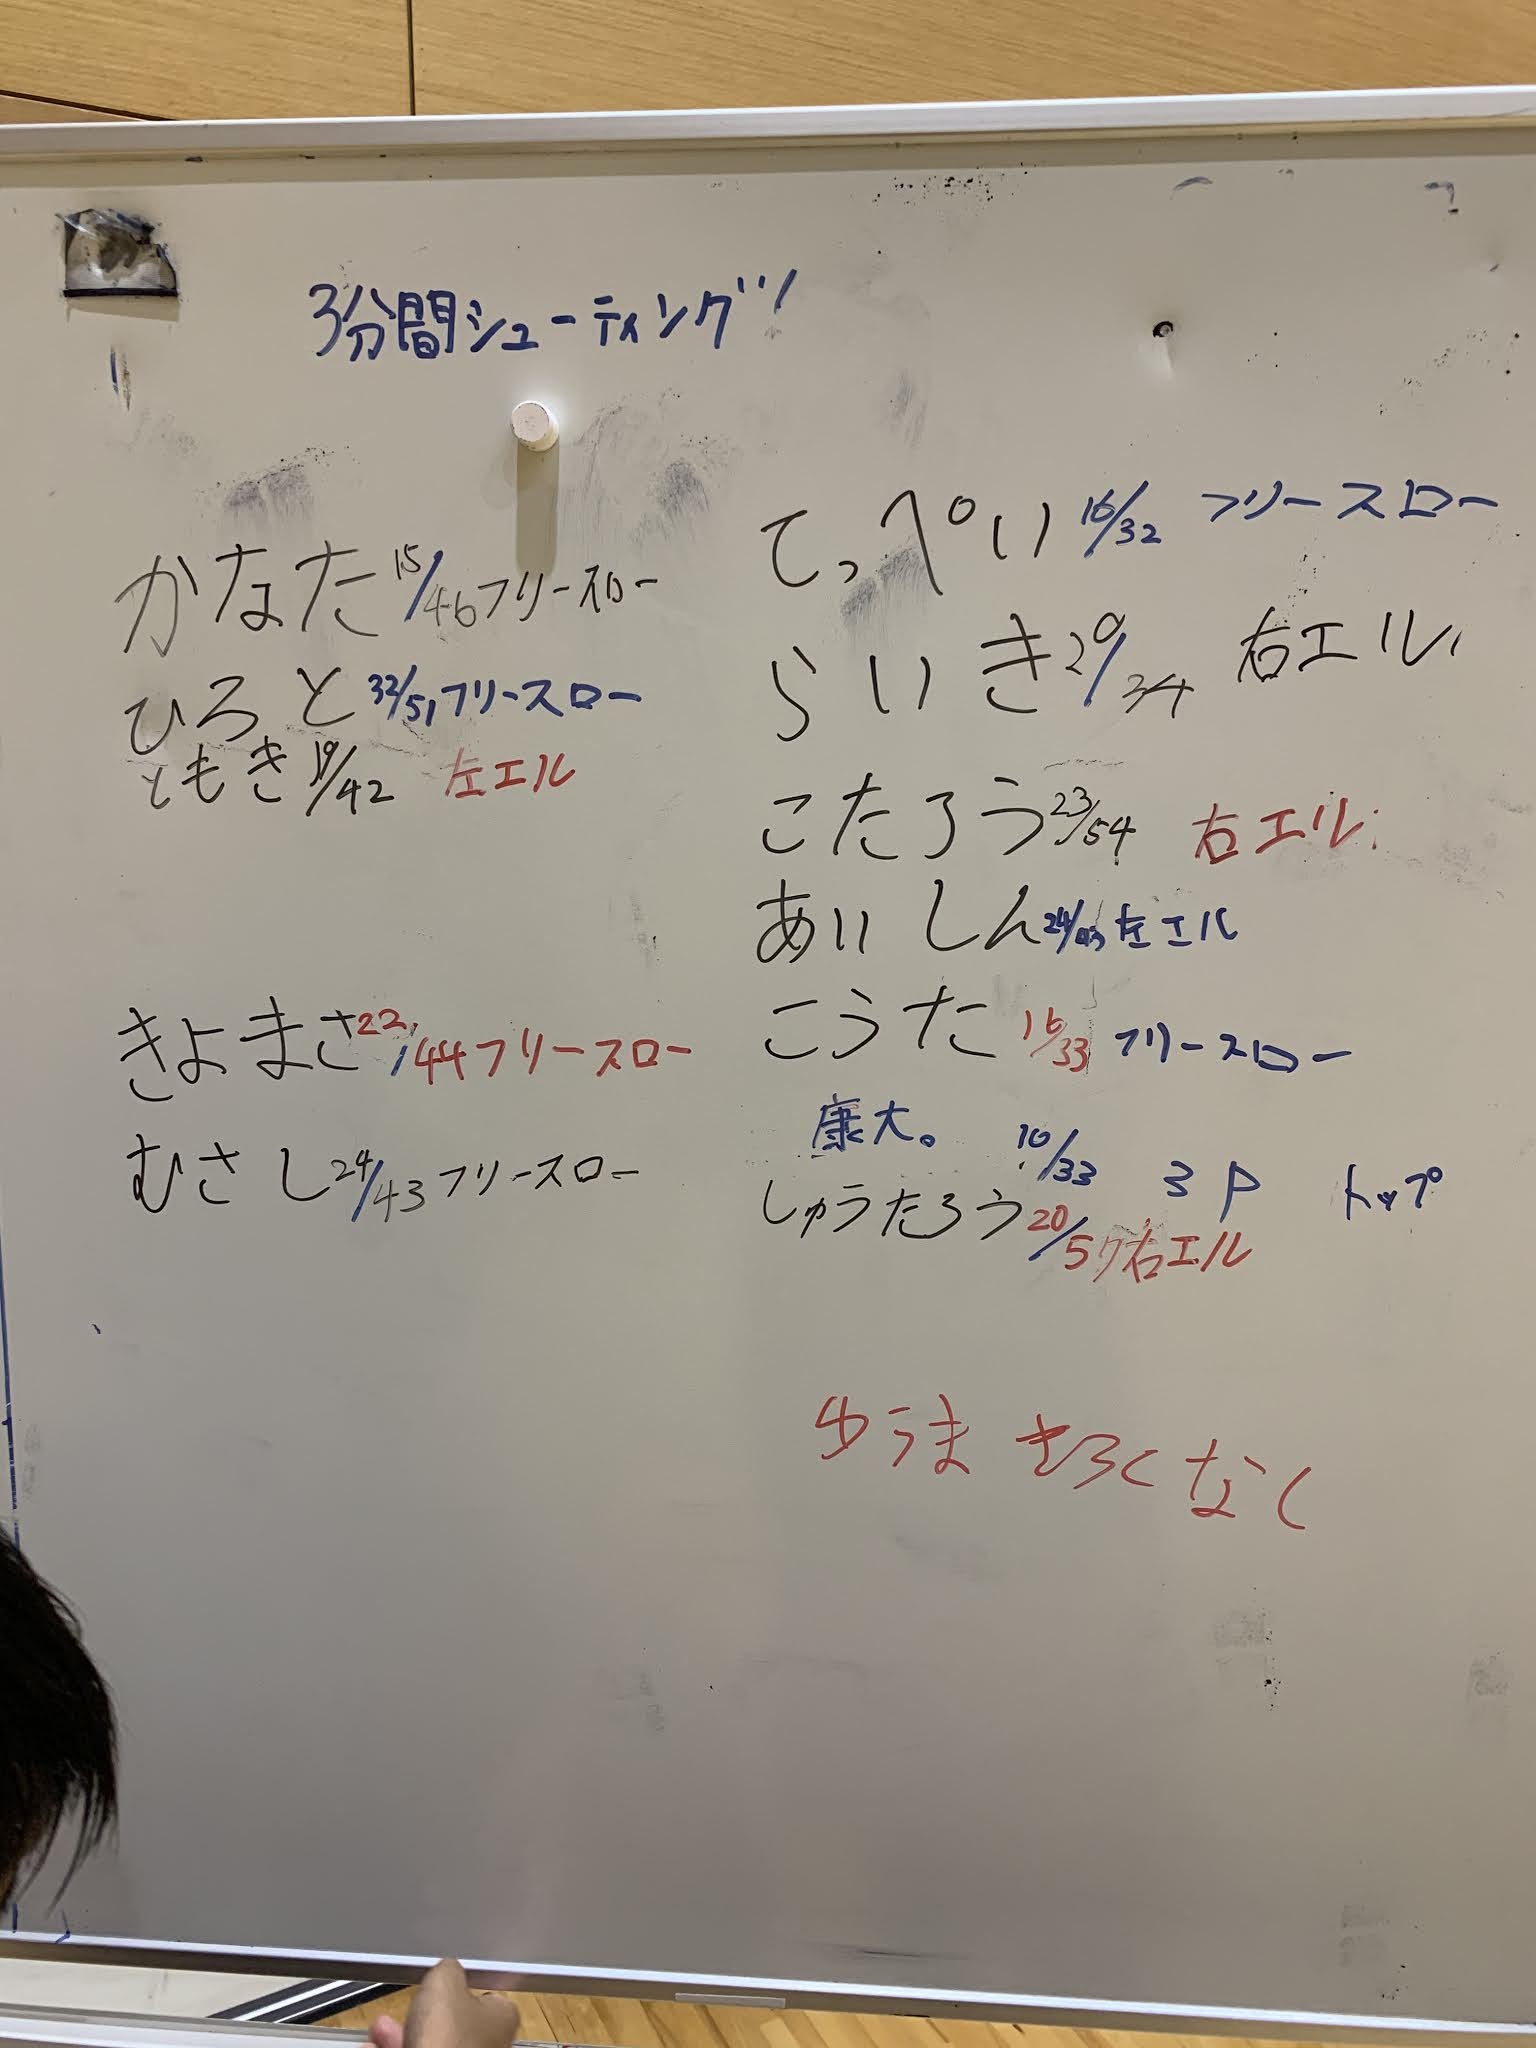 3分間シューティング!
かなた 15/46 フリースロー
ひろと 32/51 フリースロー
ともき 19/42 左エル
きよまさ 22/44 フリースロー
むさし 24/43 フリースロー
てっぺい 16/32 フリースロー
らいき 20/34 右エル
こたろう 23/54 右エル
あいしん 左エル
こうた 16/33 フリースロー
康大。 10/33 3P トップ
しゅうたろう 20/57 右エル
ゆうま きろくなし